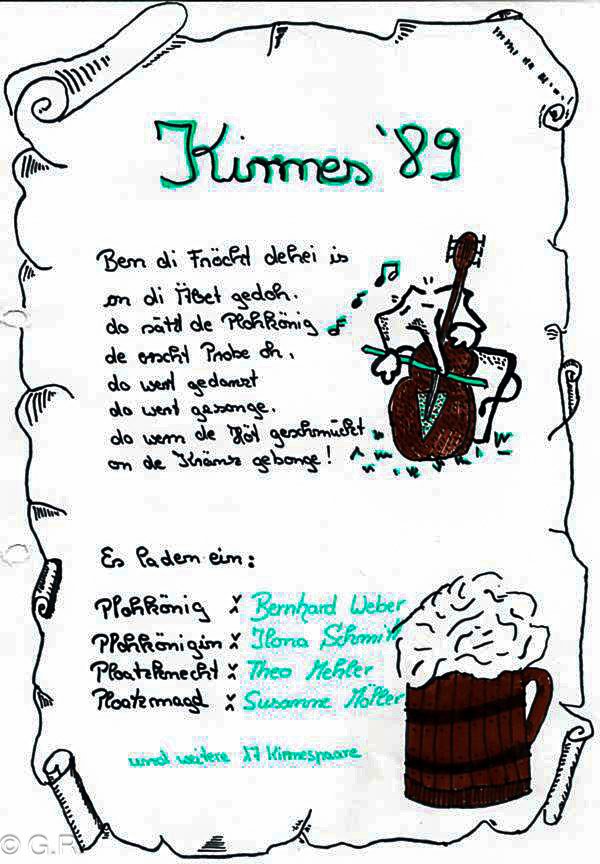 Kirmes '89
Ben di Fröcht dehei is
on di Äbet gedoh.
do sätzt de Plohkönig
de erscht Probe oh.
do werd gedanzt
do werd gesonge.
do wern de Höt geschmückt
on de Kränz gebonge!
Es laden ein:
Plohkönig : Bernhard Weber
Plohkönigin : Ilona Schmitt
Ploatzknecht : Theo Mehler
Ploatzmagd : Susanne Möller
und weitere 17 Kirmespaare
© G.R